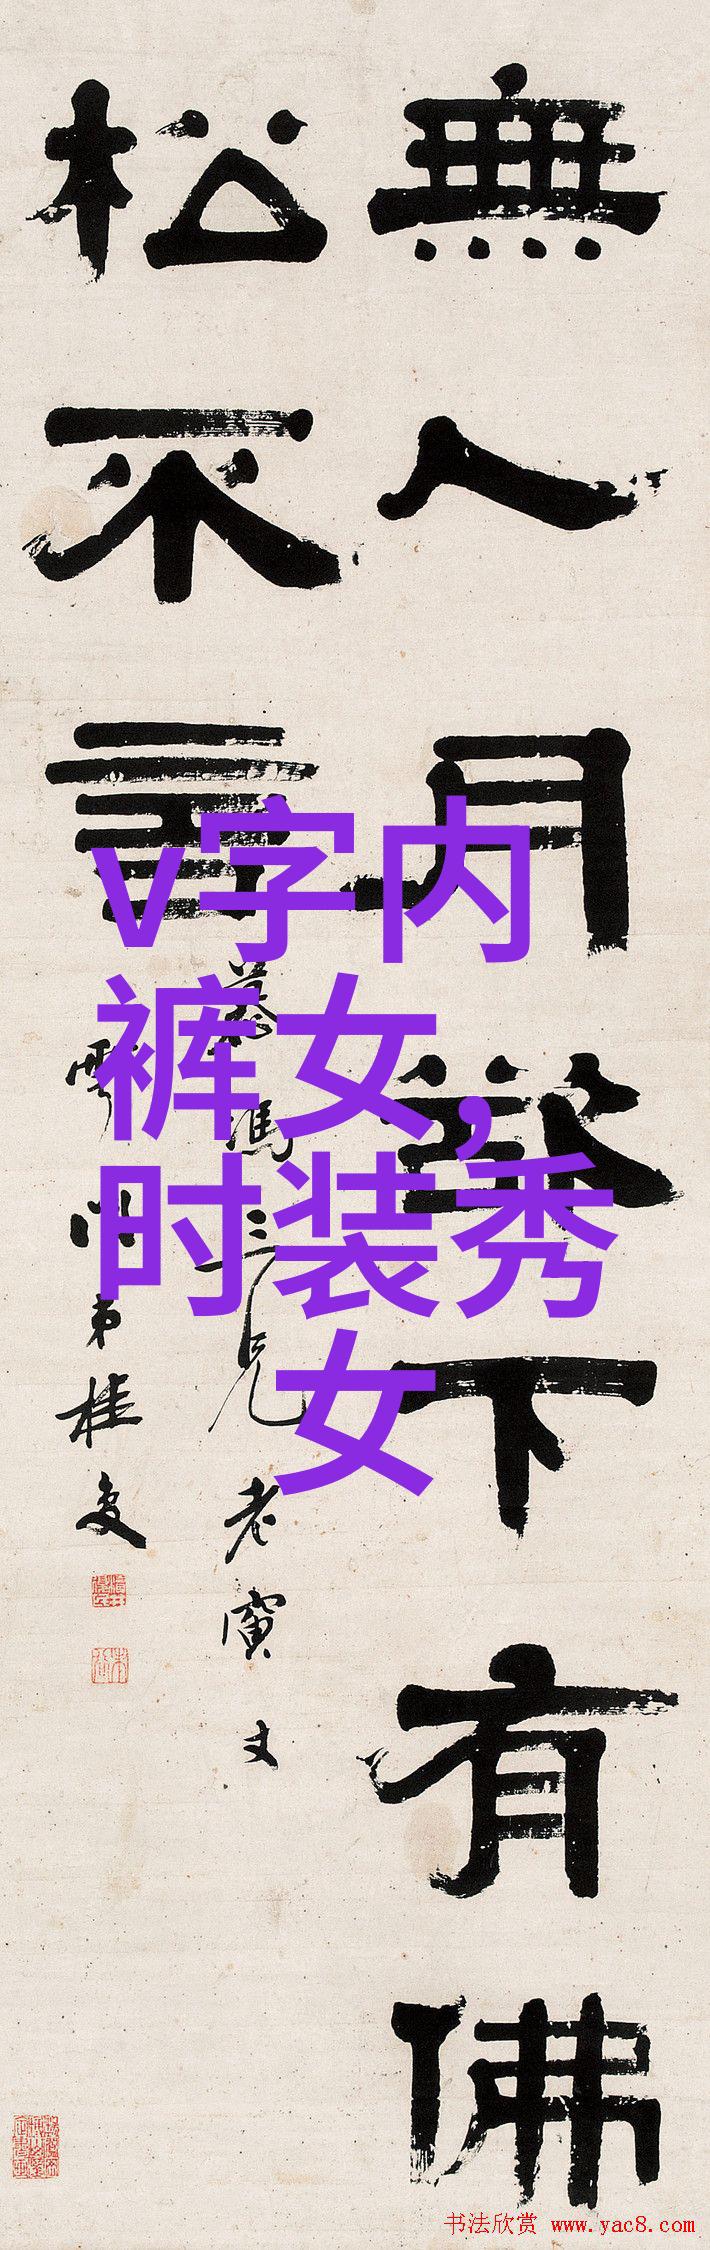 無人月
下有佛
松不言
三兄老寅丈
門弟桂
v字内
裤女,
时装秀
女
书法欣赏 www.yac8.com